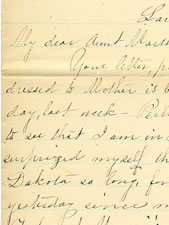 Lar
My dear Aunt Mart
Your letter, p
dressed to Mother is
day, last week - Per
to see that I am in
surprized myself th
Dakota so long, for
yesterday since m